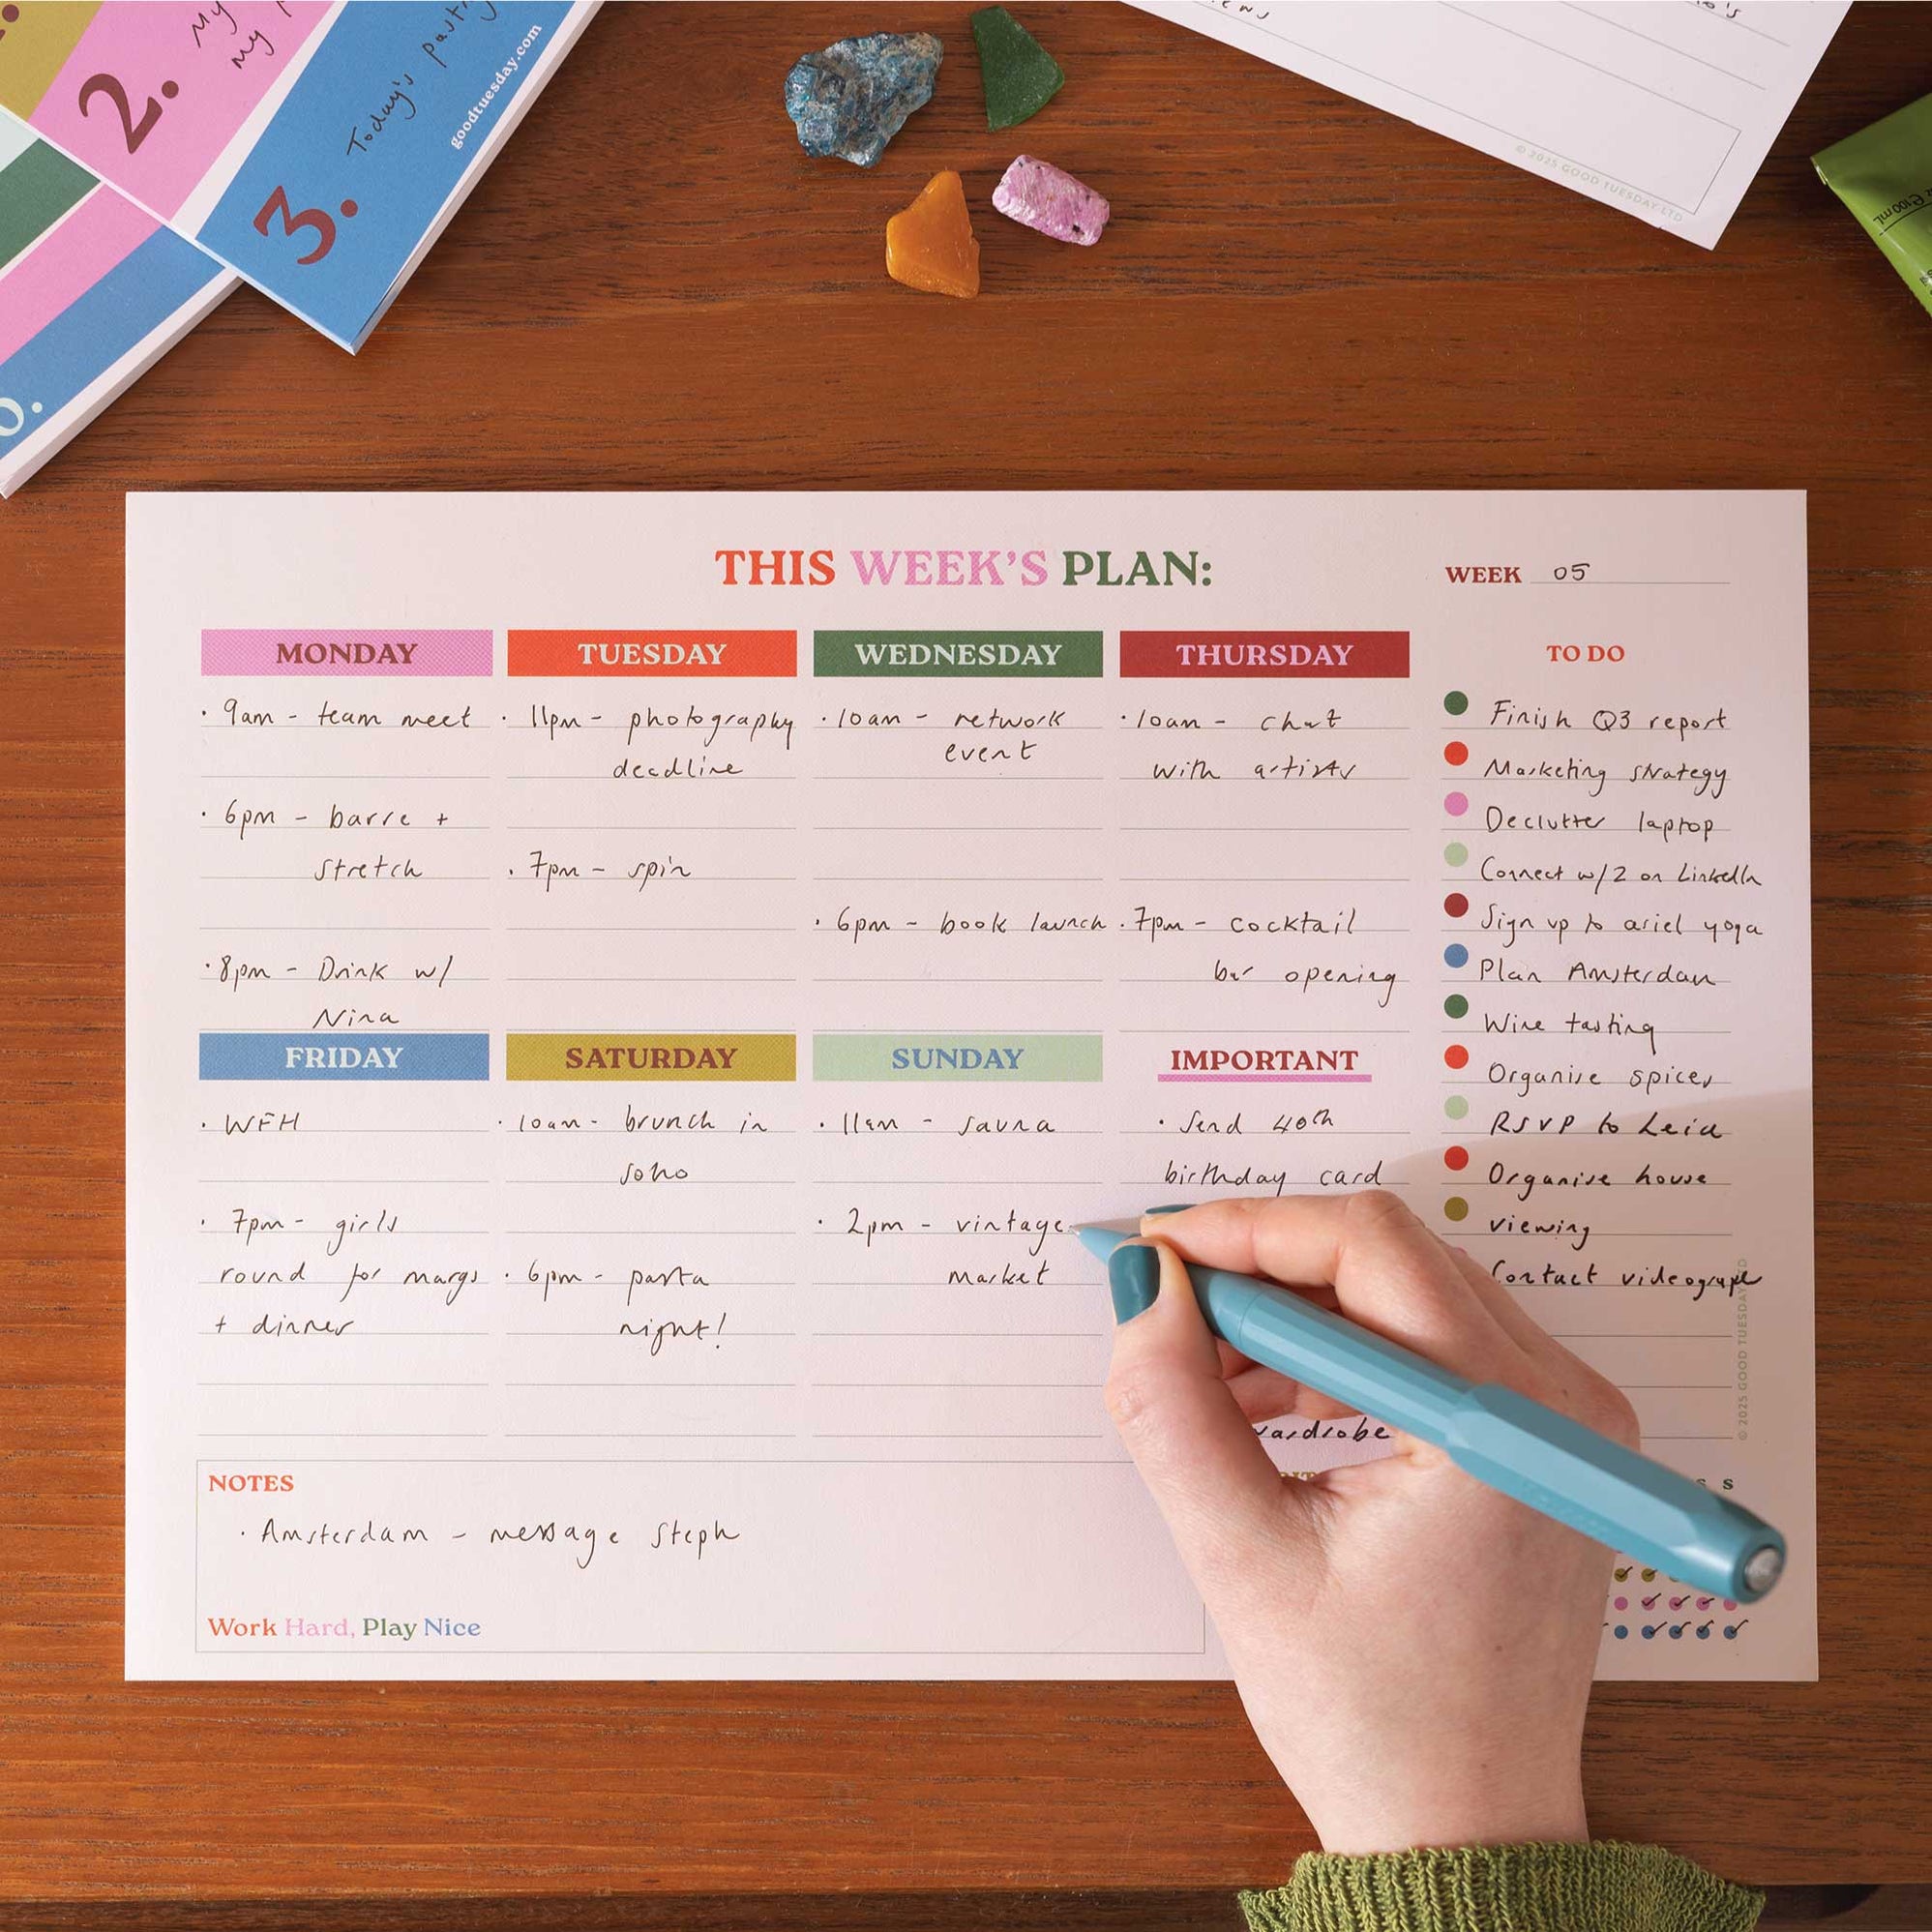 2.
My
my
3.
Today's
goodtuesday.com
© 2025 GOOD TUESDAY LTD
THIS WEEK'S PLAN:
WEEK 05
MONDAY
· 9am - team meet
· 6pm - barre +
stretch
· 8pm - Drink w/
Nina
TUESDAY
· 11pm - photography
deadline
· 7pm - spin
WEDNESDAY
· 10am - network
event
· 6pm - book launch
THURSDAY
· 10am - chat
with artists
· 7pm - cocktail
bar opening
TO DO
Finish Q3 report
Marketing strategy
Declutter laptop
Connect w/2 on LinkedIn
Sign up to ariel yoga
Plan Amsterdam
Wine tasting
Organise spices
RSVP to Leia
Organise house
viewing
Contact videographe
FRIDAY
· WFH
· 7pm - girls
round for margs
+ dinner
SATURDAY
· 10am - brunch in
soho
· 6pm - pasta
night!
SUNDAY
· 11am - sauna
· 2pm - vintage
market
IMPORTANT
· Send 40th
birthday card
wardrobe
S S
NOTES
· Amsterdam - message Steph
Work Hard, Play Nice
© 2025 GOOD TUESDAY LTD